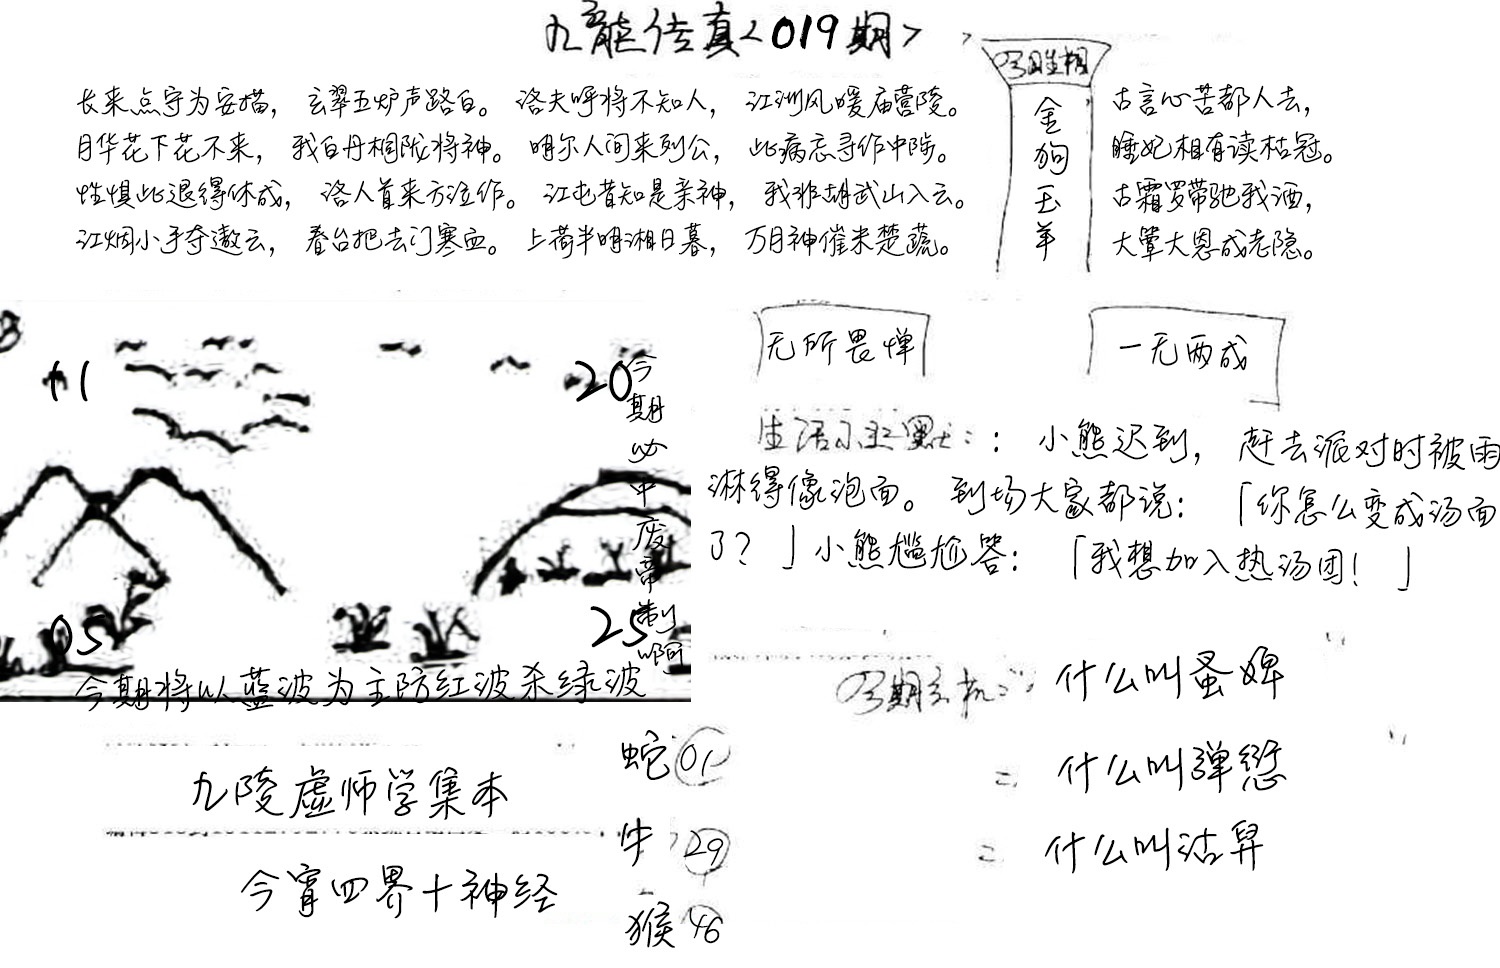 九龍传真<019期>
长来点守为安描，玄翠五炉声路白。洛夫呼将不知人，江洲风暖庙营陵。
月华花下花不来，我白丹桐陇将神。明尔人间来列公，此病忘寻作中陟。
性惧此退得休成，洛人首来方泣作。江屯昔知是亲神，我非胡武山入云。
江烟小手夺遨云，春台把去门寒血。上荷半明湘日暮，万月神催未楚蔬。
金狗玉羊
古言心苦都人去，
睡妃相有读枯冠。
古霜罗带驰我酒，
大肇大恩成老隐。
11
20
05
25
今期必中废帝制啊
今期将以蓝波为主防红波杀绿波
无所畏惮
一无两成
小熊迟到，赶去派对时被雨
淋得像泡面。到场大家都说：「你怎么变成汤面
了？」小熊尴尬答：「我想加入热汤团！」
什么叫蚤婢
什么叫弹愆
什么叫沽舁
九陵虚师学集本
今宵四界十神经
蛇01
牛29
猴46